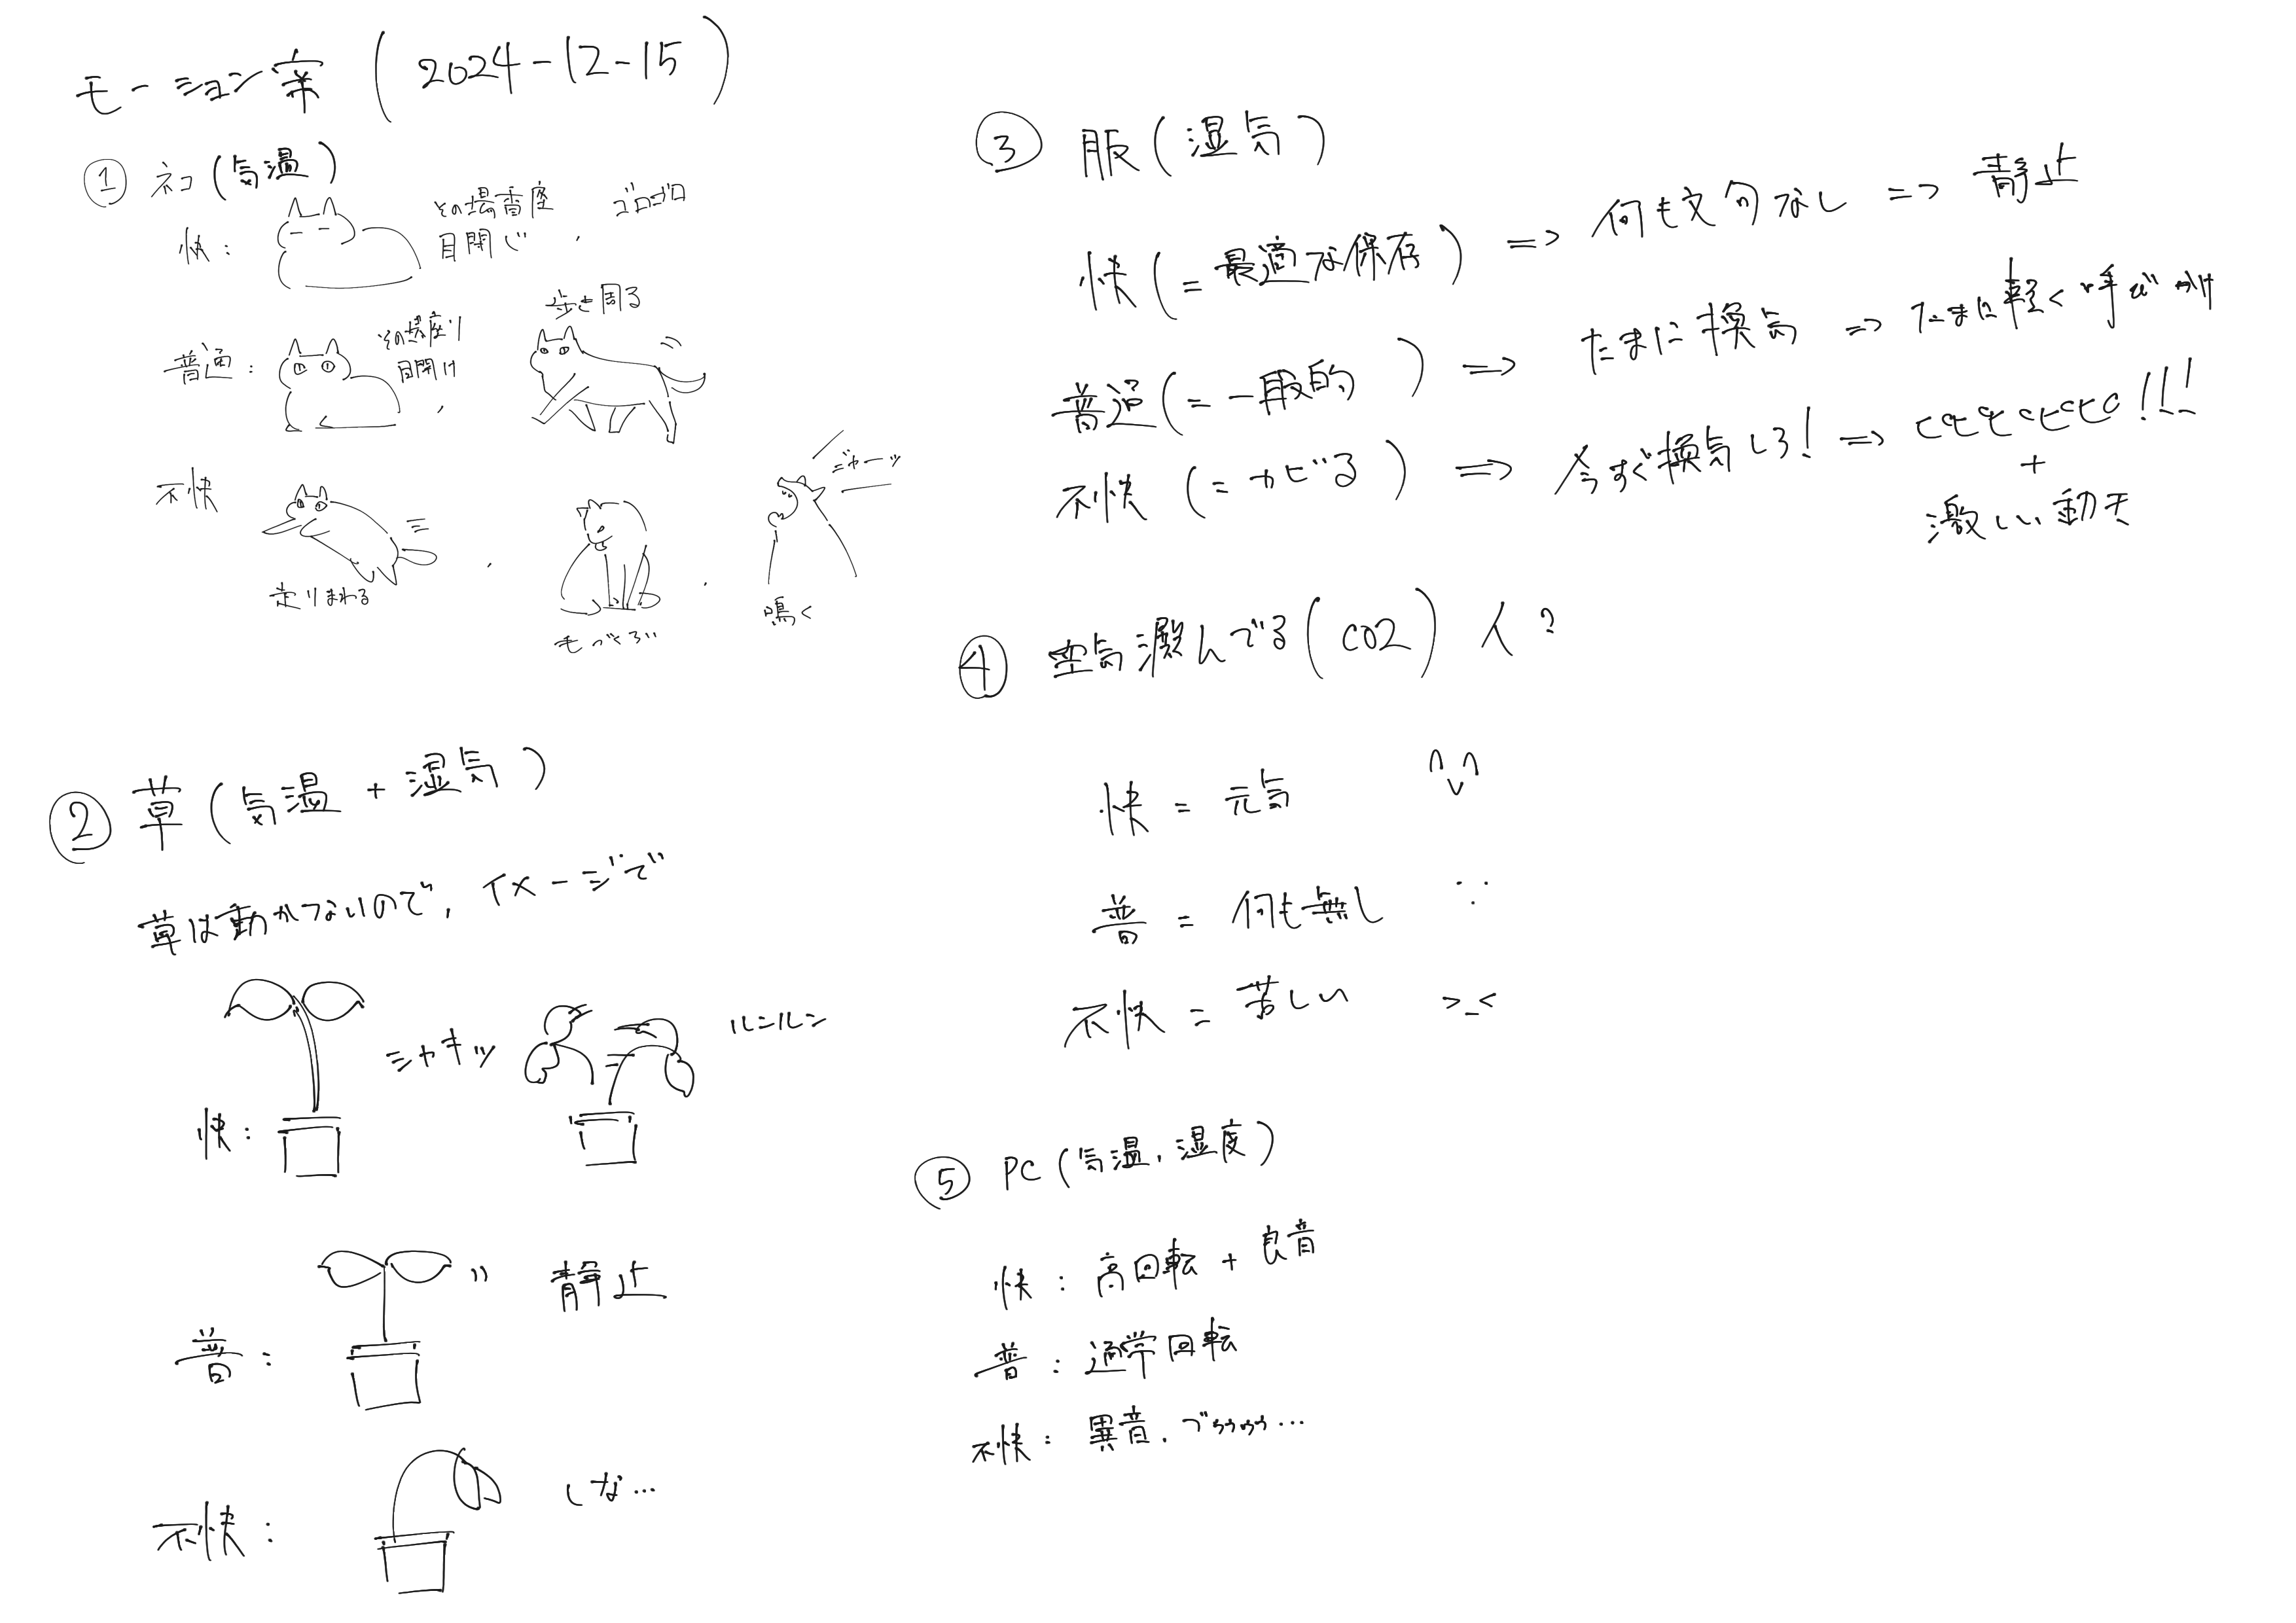 モーション案 (2024-12-15)
① ネコ (気温)
快:
その場香座
目閉じ, ゴロゴロ
普通:
その場座り
目開け,
歩き周る
不快
走りまわる
毛づくろい
ギャーッ
鳴く
② 草 (気温 + 湿気)
草は動かないので, イメージで
快: シャキッ
ルンルン
普: 静止
不快: しな…
③ 服 (湿気)
快 (= 最適な保存) => 何も文句なし => 静止
普通 (= 一般的) => たまに換気 => たまに軽く呼びかけ
不快 (= カビる) => 今すぐ換気しろ! =>
+
激しい動き
④ 空気澱んでる (CO2) 人?
快 = 元気 ^v^
普 = 何も無し
不快 = 苦しい >_<
⑤ PC (気温, 湿度)
快: 高回転 + 良音
普: 通常回転
不快: 異音, ブゥゥゥゥ…